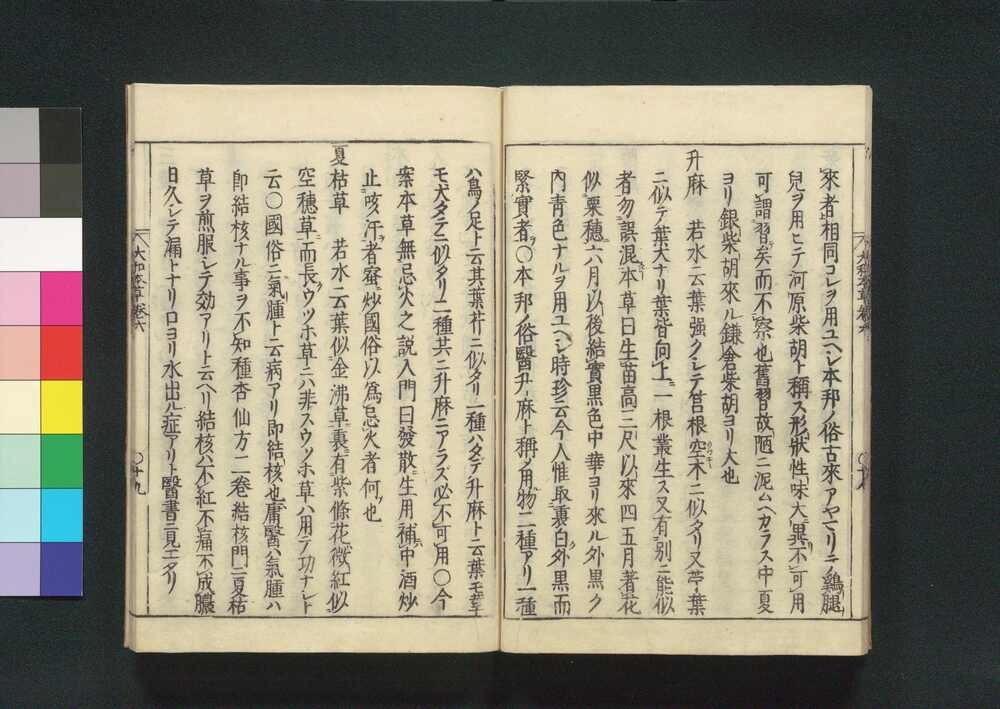 來者相同コレヲ用ユヘシ本邦ノ俗古來アヤマリテ鷄腿
兒ヲ用ヒテ河原柴胡ト稱ス形狀性味大異不可用
可謂習矣而不察也舊習故陋ニ泥ムヘカラス中夏
ヨリ銀柴胡來ル鎌倉柴胡ヨリ大也
升麻 若水云葉強クシテ莒根空木ニ似タリ又葶葉
ニ似テ葉大ナリ葉皆向上一根叢生ス又有別ニ能似
者勿誤混本草曰生苗高三尺以來四五月著花
似粟穗六月以後結實黑色中華ヨリ來ル外黑ク
內靑色ナルヲ用ユヘシ時珍云今人惟取裏白外黑而
緊實者○本邦ノ俗醫升麻ト稱ノ用物二種アリ一種
ハ鳥ノ足ト云其葉芹ニ似タリ一種ハタデ升麻ト云葉モ莖
モ犬タデニ似タリ二種共ニ升麻ニアラズ必不可用○今
案本草無忌火之說入門曰發散生用補中酒炒
止咳汗者蜜炒國俗以爲忌火者何也
夏枯草 若水云葉似金沸草裏有紫條花微紅似
空穗草而長ウツホ草ニハ非スウツホ草ハ用テ功ナシト
云○國俗ニ氣腫ト云病アリ即結核也庸醫ハ氣腫ハ
即結核ナル事ヲ不知種杏仙方二卷結核門ニ夏枯
草ヲ煎服シテ効アリト云ヘリ結核ハ不紅不痛不成膿
日久シテ漏トナリ口ヨリ水出ル症アリト醫書ニ見エタリ
大和本草卷六
○十九